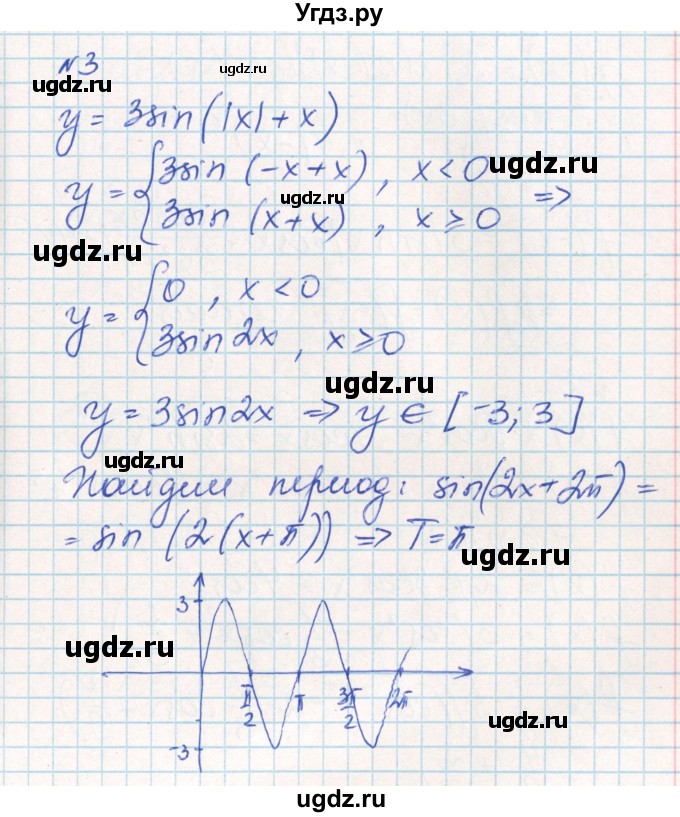 Угдз.ру
№3
ugdz.ru
ugdz.ru
y = 3sin(|x| + x)
y = { 3sin (-x+x), x < 0
ugdz.ru
ugdz.ru
3sin (x+x), x ⩾ 0 =>
ugdz.ru
y = { 0, x < 0
3sin2x, x ⩾ 0
ugdz.ru
y = 3sin2x => y ∈ [-3; 3]
ugdz.ru
Найдем период: sin(2x+2π) =
= sin (2(x+π)) => T=π
ugdz.ru
3
ugdz.ru
π/2 π 3π/2 2π
ugdz.ru
-3
ugdz.ru